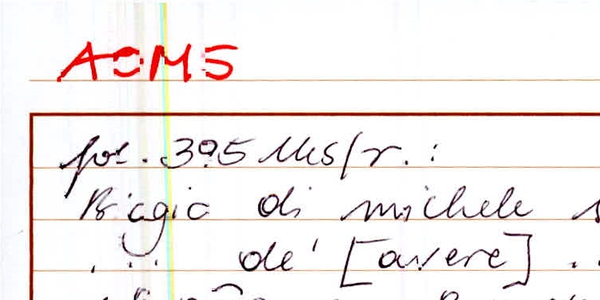 AOM5
fol. 395 Ms/r. :
Biagio di michele
... de' [avere] ..